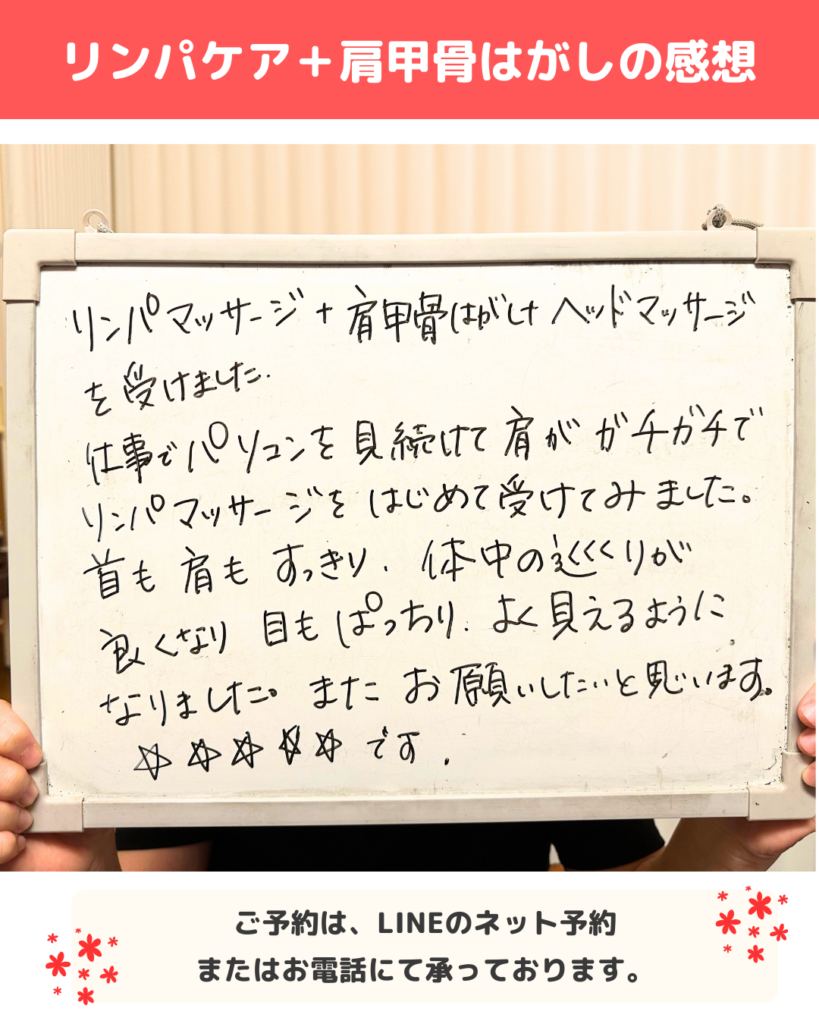 リンパケア＋肩甲骨はがしの感想
リンパマッサージ+肩甲骨はがし+ヘッドマッサージ
を受けました.
仕事でパソコンを見続けて肩がガチガチで
リンパマッサージをはじめて受けてみました。
首も肩もすっきり.体中のめぐりが
良くなり目もぱっちり.よく見えるように
なりました。またお願いしたいと思います。
☆☆☆☆☆です.
ご予約は、LINEのネット予約
またはお電話にて承っております。